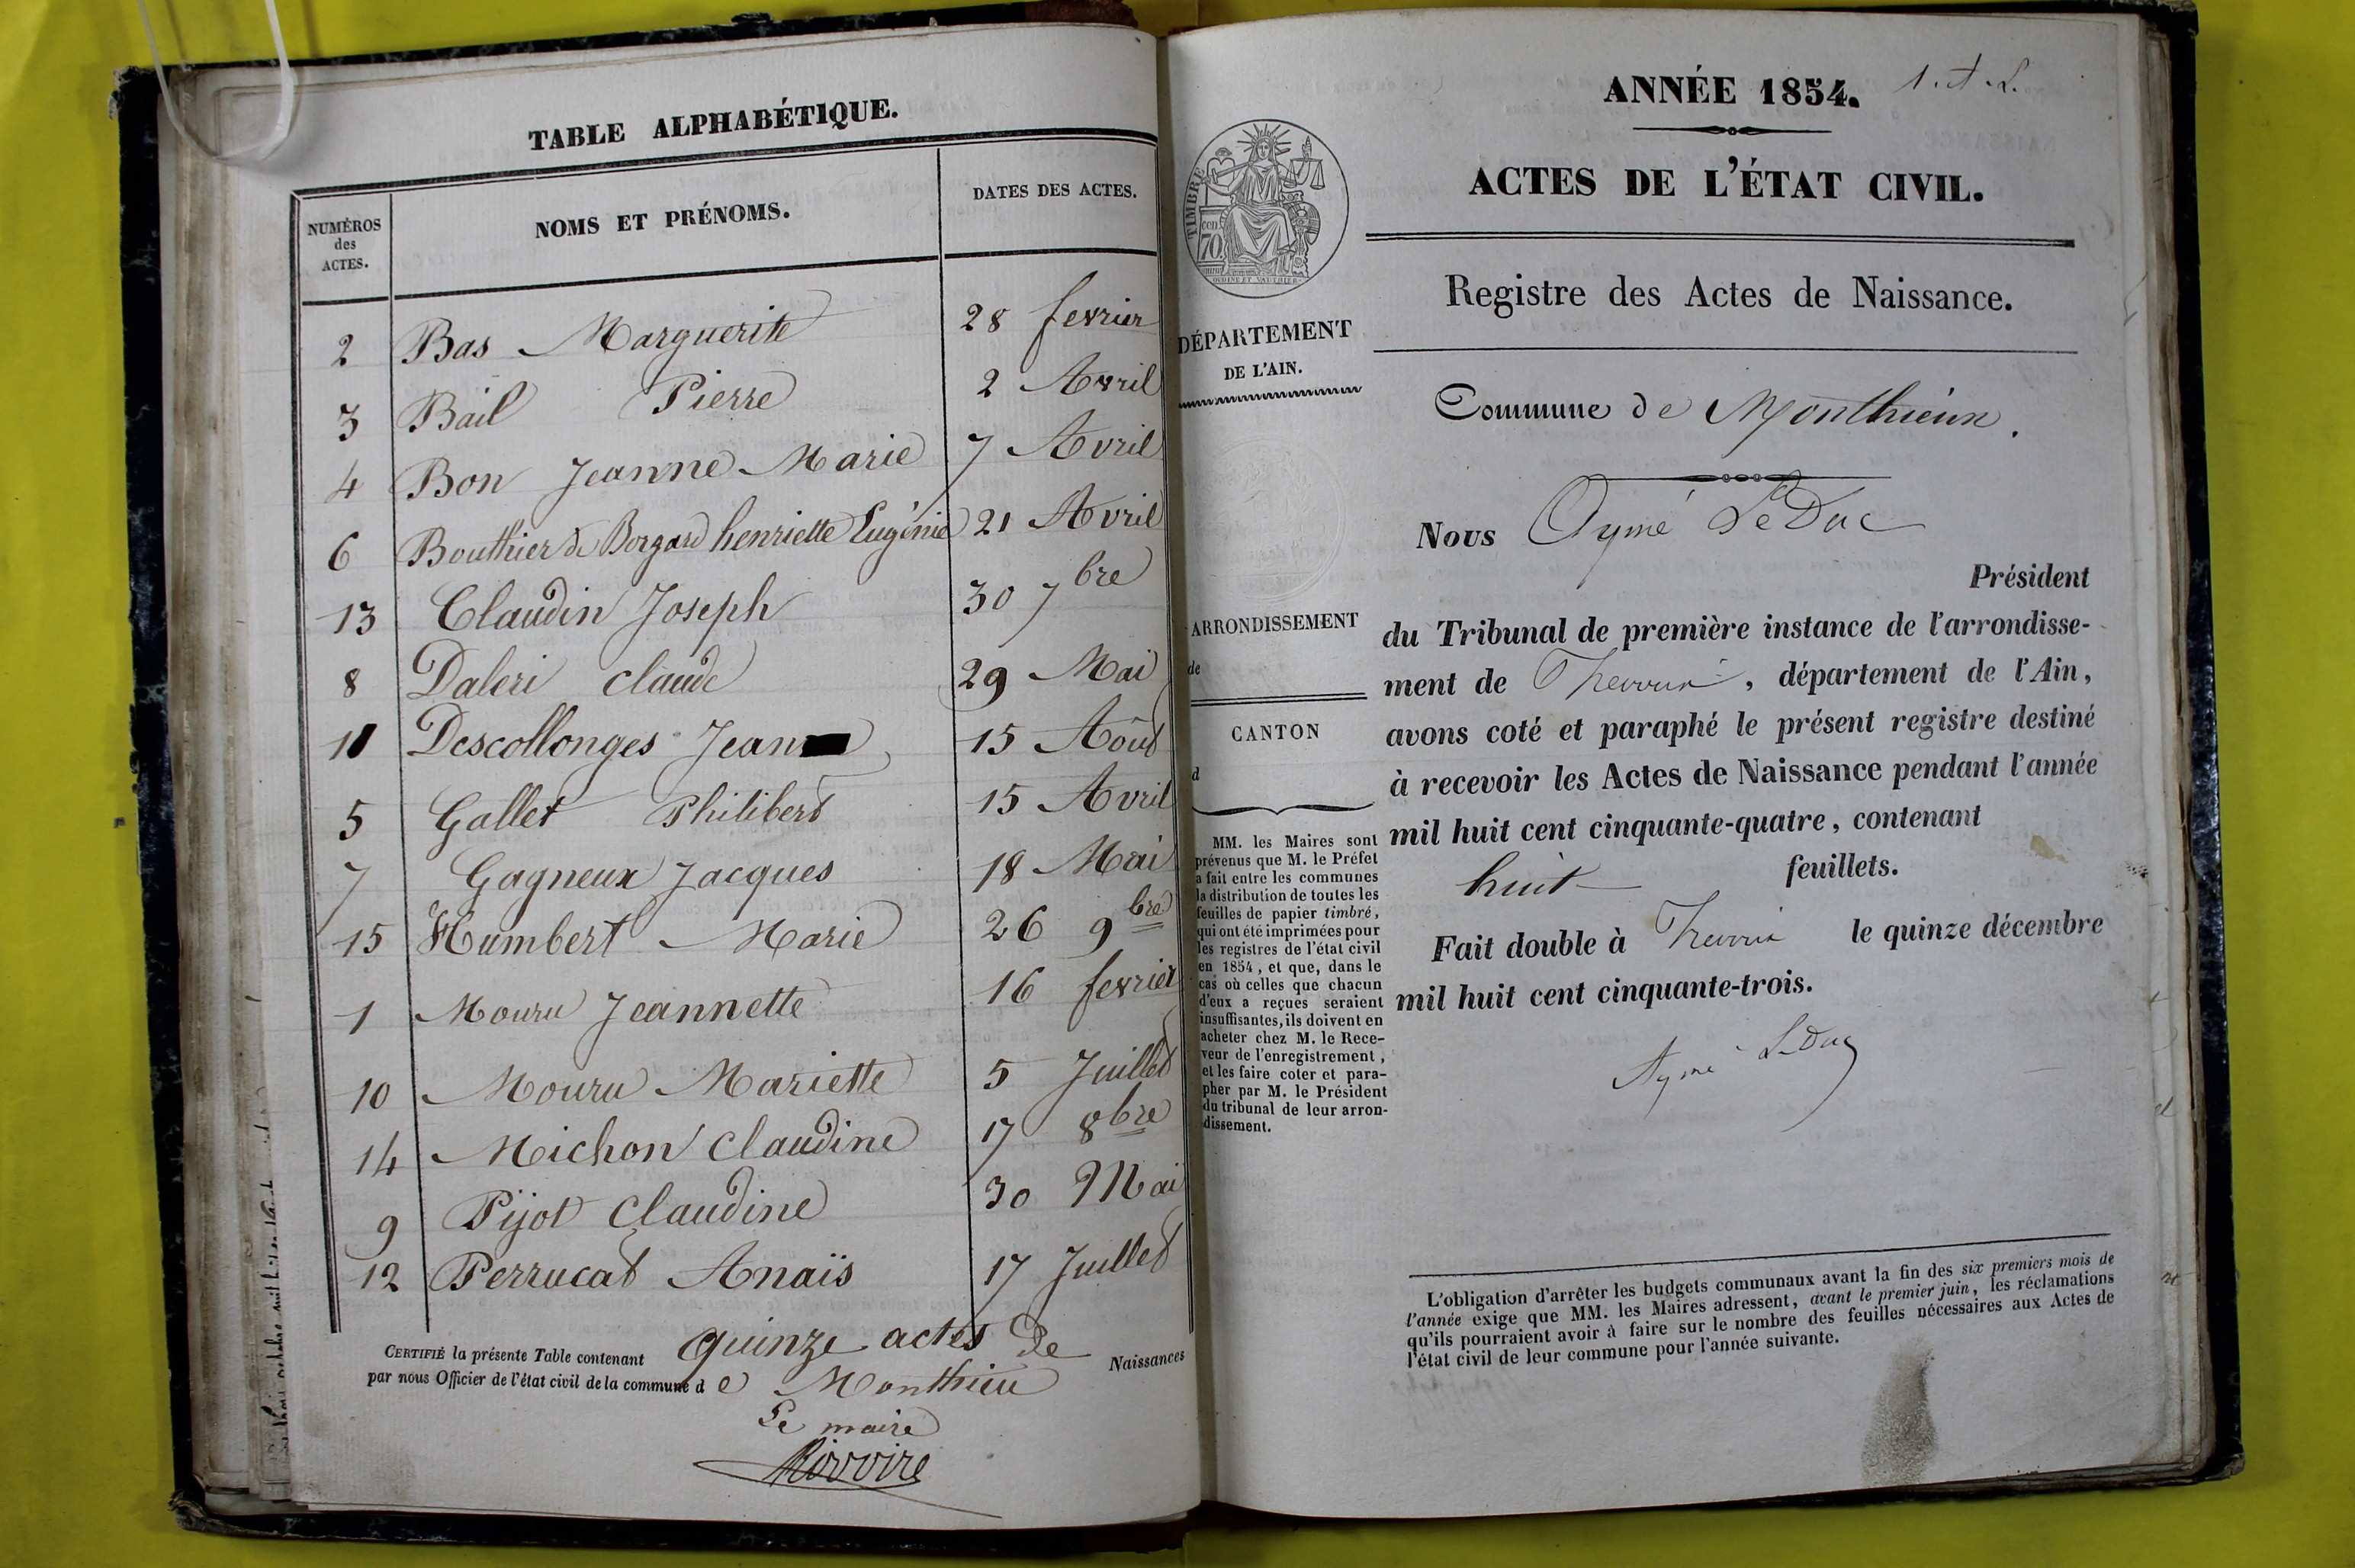 TABLE ALPHABÉTIQUE.
NUMÉROS
des
ACTES.
NOMS ET PRÉNOMS.
DATES DES ACTES.
2 Bas Marguerite 28 fevrier
3 Bail Pierre 2 Avril
4 Bon Jeanne Marie 7 Avril
6 Bouthier de Borgard henriette Eugénie 21 Avril
13 Claudin Joseph 30 7bre
8 Daleri claude 29 Mai
11 Descollonges Jean 15 Aôut
5 Gallet Philibert 15 Avril
7 Gagneux Jacques 18 Mai
15 Humbert Marie 26 9bre
1 Mouru Jeannette 16 fevrier
10 Mouru Mariette 5 Juillet
14 Michon Claudine 17 8bre
9 Pijot Claudine 30 Mai
12 Perrucat Anaïs 17 Juillet
CERTIFIÉ la présente Table contenant quinze actes de Naissances
par nous Officier de l'état civil de la commune d e Monthieu
Le maire
Rivoire
ANNÉE 1854.
1. A. L.
ACTES DE L'ÉTAT CIVIL.
Registre des Actes de Naissance.
TIMBRE
70
DÉPARTEMENT
DE L'AIN.
ARRONDISSEMENT
de
CANTON
d
MM. les Maires sont
prévenus que M. le Préfet
a fait entre les communes
la distribution de toutes les
feuilles de papier timbré,
qui ont été imprimées pour
les registres de l'état civil
en 1854, et que, dans le
cas où celles que chacun
d'eux a reçues seraient
insuffisantes, ils doivent en
acheter chez M. le Rece-
veur de l'enregistrement,
et les faire coter et para-
pher par M. le Président
du tribunal de leur arron-
dissement.
Commune de Monthieux.
Nous Aymé LeDuc
Président
du Tribunal de première instance de l'arrondisse-
ment de Trévoux, département de l'Ain,
avons coté et paraphé le présent registre destiné
à recevoir les Actes de Naissance pendant l'année
mil huit cent cinquante-quatre, contenant
huit feuillets.
Fait double à Trévoux le quinze décembre
mil huit cent cinquante-trois.
Aymé LeDuc
L'obligation d'arrêter les budgets communaux avant la fin des six premiers mois de
l'année exige que MM. les Maires adressent, avant le premier juin, les réclamations
qu'ils pourraient avoir à faire sur le nombre des feuilles nécessaires aux Actes de
l'état civil de leur commune pour l'année suivante.